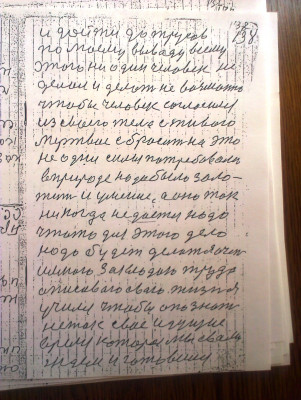 138
и дойти до трусов
по моему выводу всему
этого ни один человек не
делал и делат не возможно
чтобы человек согласился
из своего тела с живого
мертвое сбросит на это
не одни силы потребовали
в природе надо было золо-
и умение, а оно так
никогда не дается надо
чтото для этого дело
надо будет делат
много заевода труда
описавого своего жизня
учили чтобы опознат
не так свое идущие
время которое мы звали
ждем и готовеши